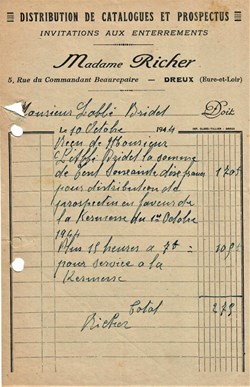 DISTRIBUTION DE CATALOGUES ET PROSPECTUS
INVITATIONS AUX ENTERREMENTS
Madame Richer
5, Rue du Commandant Beaurepaire — DREUX (Eure-et-Loir)
Monsieur Labbé Bridet Doit
Le 10 Octobre 1944
Reçu de Monsieur
L'abbé Bridet la somme
de Cent Soixante dix pour 170
pour distribution de
prospectus en faveur de
la Kermesse du 1er Octobre
1944
Plus 15 heures a 7 = 105
pour service a la
Kermesse
Total 275
Richer